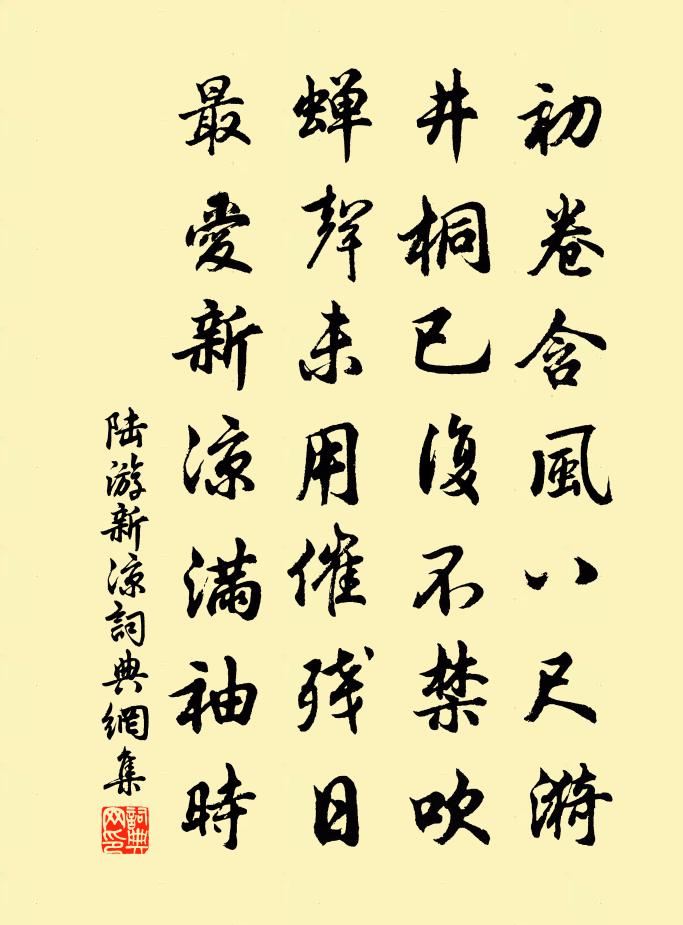 初卷含風八尺漪
井桐已復不禁吹
蟬聲未用催残日
最愛新凉滿袖時
陆游新凉詞典網集
詞典网印